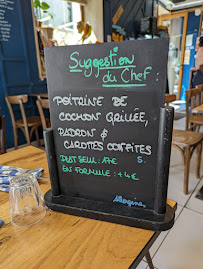 Suggestion
du Chef
POITRINE DE
COCHON GRILLÉE,
PADRON &
CAROTTES CONFITES
PLAT SEUL : 17€
EN FORMULE : +4€